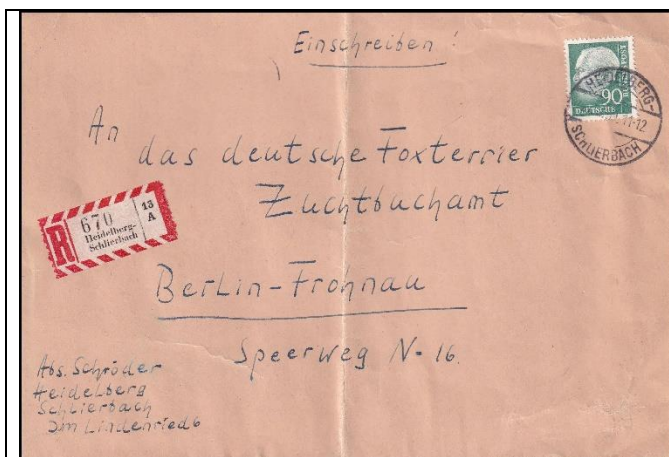 Einschreiben!
90
DEUTSCHE
BUNDESPOST
HEIDELBERG-
SCHLIERBACH
An
das deutsche Foxterrier
Zuchtbuchamt
R
670
13
A
Heidelberg-
Schlierbach
Berlin-Frohnau
Speerweg N-16.
Abs. Schröder
Heidelberg
Schlierbach
Im Lindenried 6